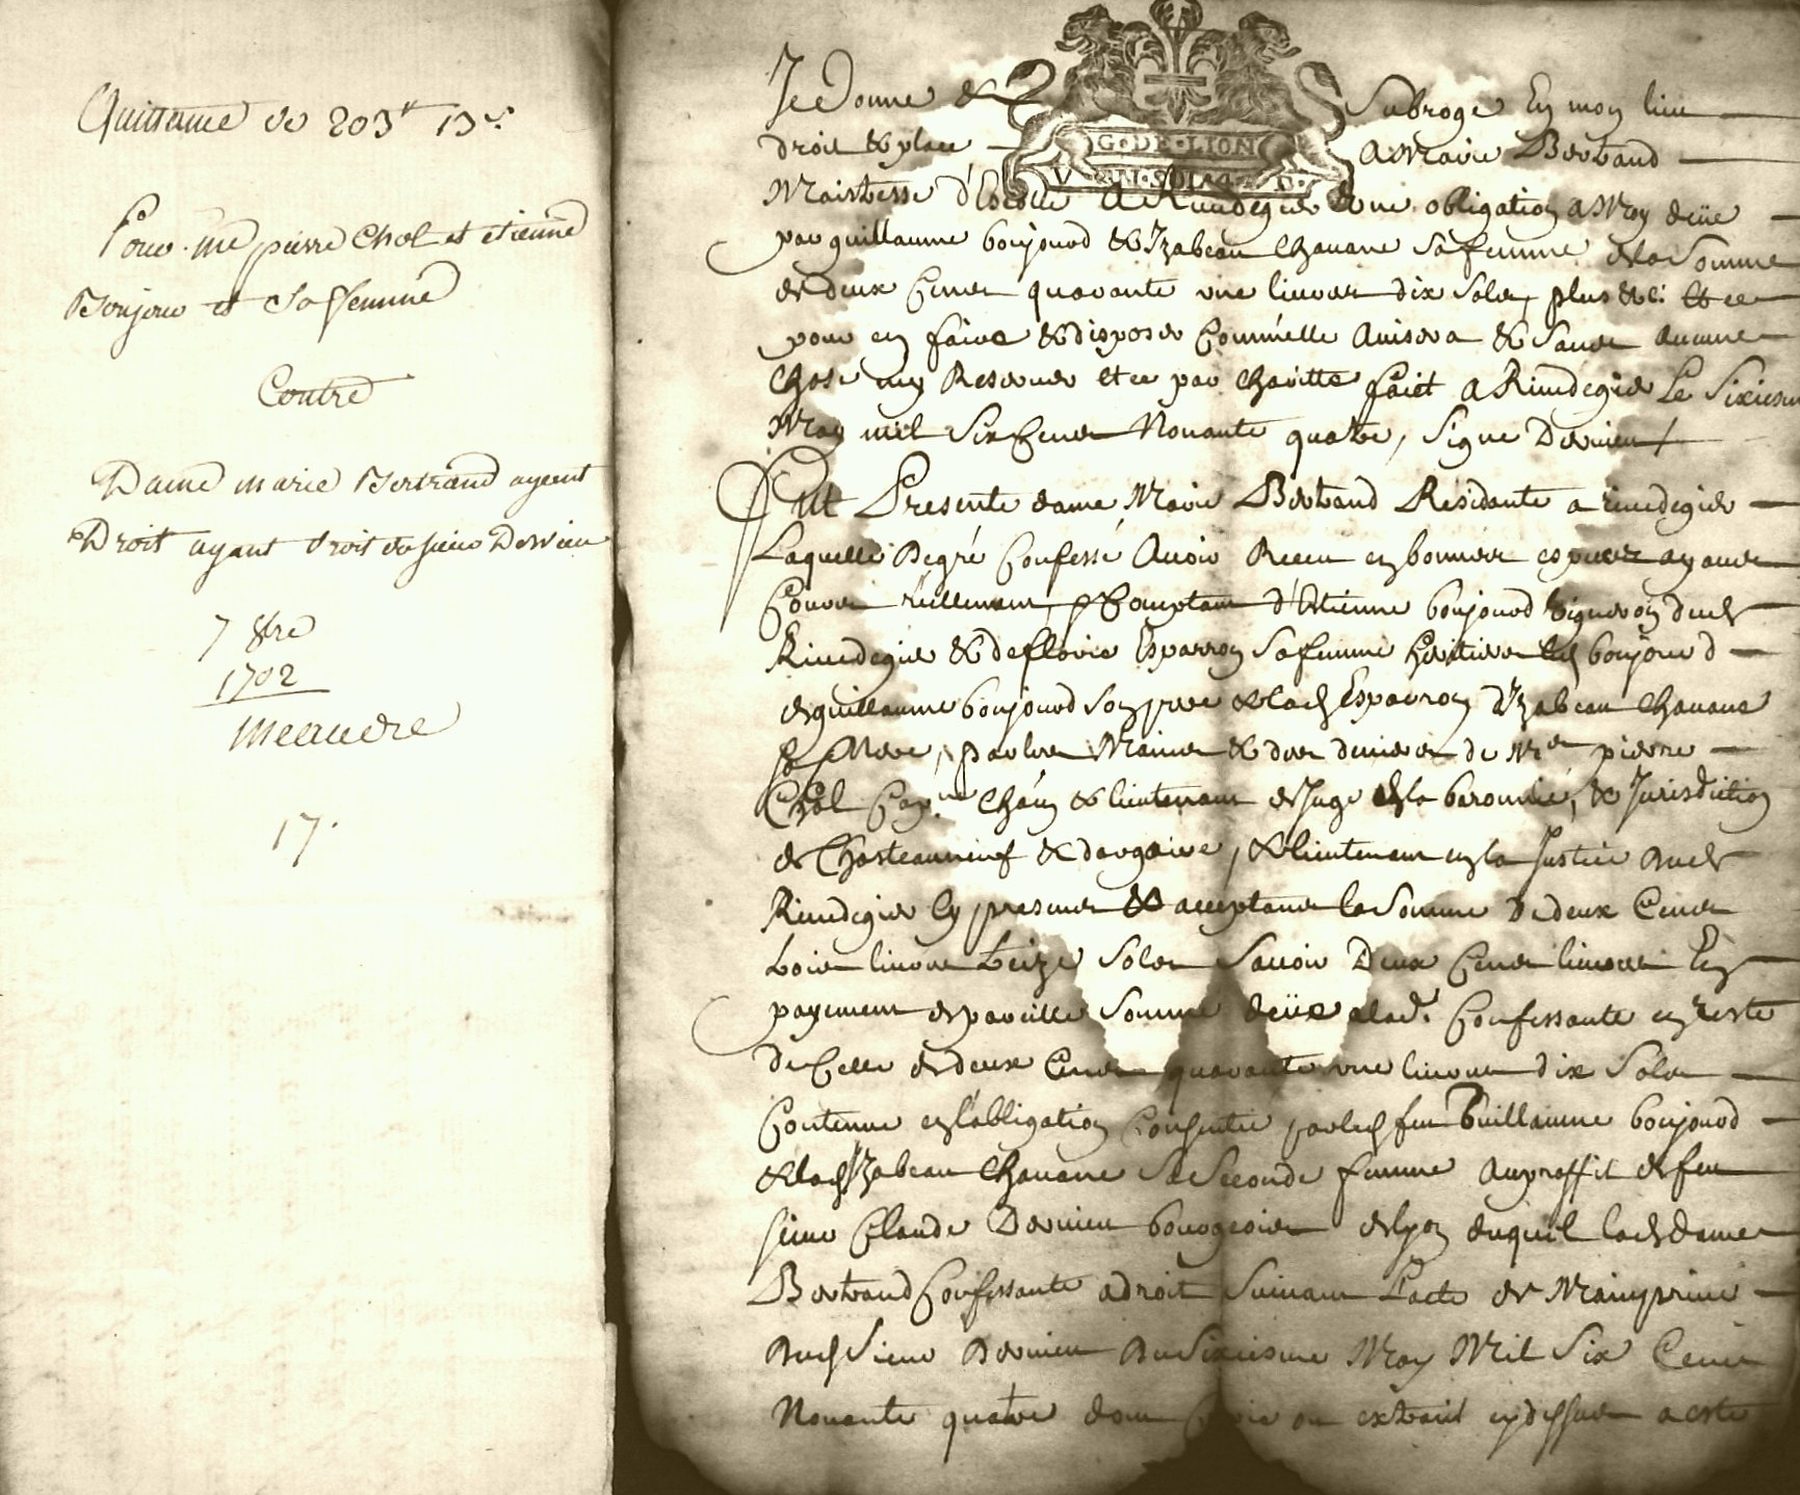 Quittance de 203ᵗᵗ 13 s.
Pour me pierre Chol et etienne
Boujou et Sa femme
Contre
Dame marie Bertrand ayent
Droit ayant droit du sieur Dervieu
7 8bre
1702
Meaudre
17.
Je Donne & Subroge En mon lieu
droit & place A Marie Bertrand
G·DE·LION
Maistresse d'Escolle A Rivedegier d'une obligation a Moy deüe
par guillaume boujoud & Izabeau Chavane Sa femme de la Somme
de deux Cents quarante une livres dix Sols, plus &c: Et ce
pour en faire & disposer Comm'elle Avisera & Sans aucune
Chose my Reserver et ce par Charitté fait A Rivedegier Le Sixiesme
May mil Six Cents Nonante quatre, Signe Dervieu
Fut Presente dame Marie Bertrand Residante a rivedegier
Laquelle Degré Confesse Avoir Receu en bonnes especes ayants
Cours reellement, & Comptant d'Estienne boujoud vigneron dud
Rivedegier & de florie Esparron Sa femme heritiers led boujoud
de guillaume boujoud Son pere & lad Esparron d'Izabeau Chavane
Sa Mere, par les Mains & des deniers de Me pierre
Chol Cap.ne Chan & lieutenant de Juge de la baronnie, & Jurisdiction
de Chasteauneuf & dargoire, & lieutenant en la Justice Dud
Rivedegier Cy present & acceptant la Somme De deux Cents
trois livres treize Sols Savoir Deux Cents livres En
payement de pareille Somme deüe a lad. Confessante en reste
de Celle de deux Cents quarante une livres dix Sols
Contenue en l'obligation Consentie par led feu Guillaume boujoud
& lad Izabeau Chavane Sa Seconde femme Au proffit de feu
Sieur Claude Dervieu bourgeois de lyon duquel lad dame
Bertrand Confessante a droit Suivant l'acte de Main prive
Dud Sieur Dervieu Du Sixiesme May Mil Six Cents
Nonante quatre dont Copie ou extrait cy dessus a esté